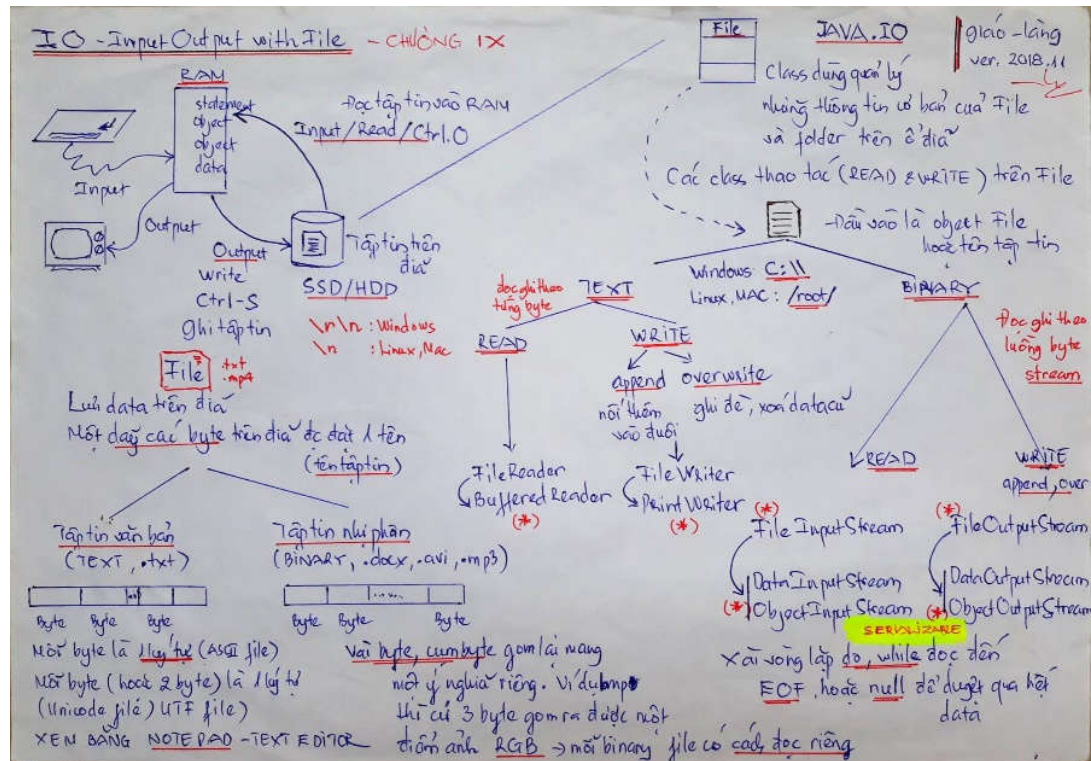 IO - Input Output with File - CHƯƠNG IX
RAM
statement
object
object
data
Input
Output
Đọc tập tin vào RAM
Input/Read/Ctrl.O
Output
Write
Ctrl-S
ghi tập tin
Tập tin trên
đĩa
SSD/HDD
\r\n : Windows
\n : Linux, Mac
File .txt
.mp4
Lưu data trên đĩa
Một dãy các byte trên đĩa đc đặt 1 tên
(tên tập tin)
Tập tin văn bản
(TEXT, .txt)
Byte Byte Byte Byte
Mỗi byte là 1 ký tự (ASCII file)
Mỗi byte (hoặc 2 byte) là 1 ký tự
(Unicode file) UTF file)
XEM BẰNG NOTEPAD - TEXT EDITOR
Tập tin nhị phân
(BINARY, .docx, .avi, .mp3)
Byte Byte Byte
Vài byte, cụm byte gom lại mang
một ý nghĩa riêng. Ví dụ bmp
thì cứ 3 byte gom ra được một
điểm ảnh RGB → mỗi binary file có cách đọc riêng
File
JAVA.IO
giáo-làng
ver. 2018.11
Class dùng quản lý
những thông tin cơ bản của File
và folder trên ổ đĩa
Các class thao tác (READ & WRITE) trên File
- Đầu vào là object File
hoặc tên tập tin
Windows C:\\
Linux, MAC : /root/
đọc ghi theo
từng byte
TEXT
READ
WRITE
append overwrite
nối thêm
vào đuôi
ghi đè, xoá data cũ
FileReader
BufferedReader
(*)
FileWriter
PrintWriter
(*)
BINARY
Đọc ghi theo
luồng byte
stream
READ
WRITE
append, over
(*)
FileInputStream
DataInputStream
(*) ObjectInputStream
(*)
FileOutputStream
DataOutputStream
(*) ObjectOutputStream
SERIALIZABLE
Xài vòng lặp do, while đọc đến
EOF, hoặc null để duyệt qua hết
data